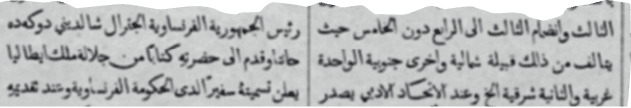 الثالث وانضمام الثالث الى الرابع دون الخامس حيث
يتالف من ذلك قبيلة شمالية واخرى جنوبية الواحدة
غربية والثانية شرقية الخ وعند الاتحاد الادبي يصدر
رئيس الجمهورية الفرنساوية الجنرال شالديني دوكه ده
حاتنا وقدم الى حضرته كتابا من جلالة ملك ايطاليا
يعلن تسميته سفيرا لدى الحكومة الفرنساوية وعند تقديمه